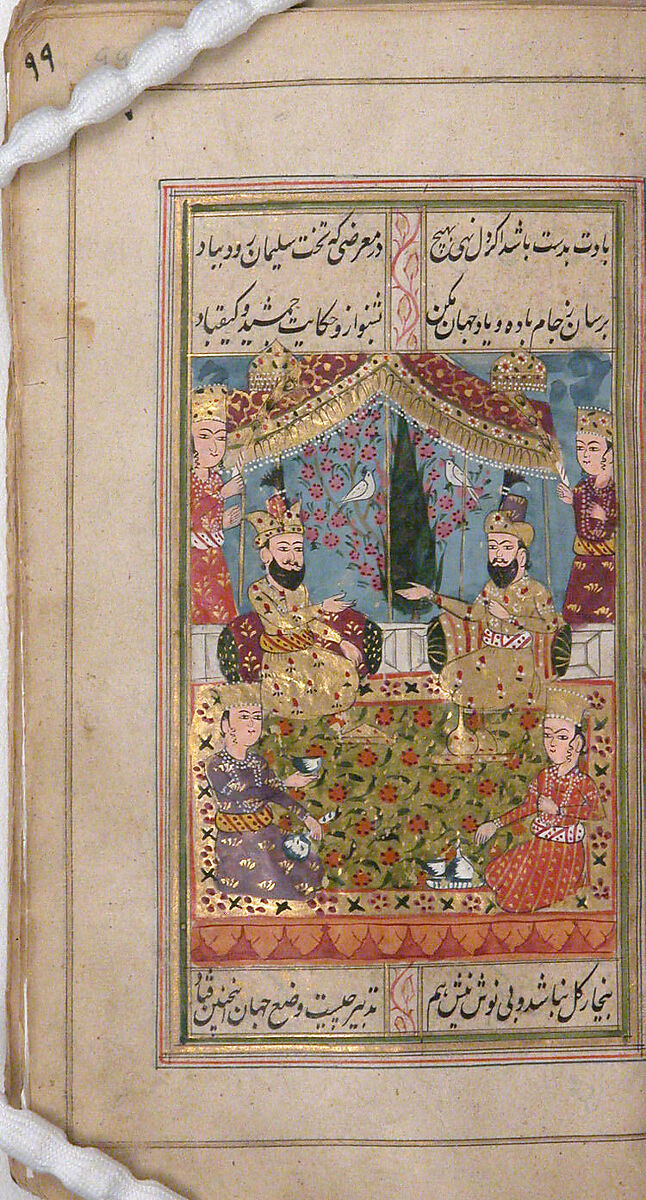 ۹۹
۹۹
بادت بدست باشد اکر دل نهی بهیچ در معرضی که تخت سلیمان رود بباد
برسان ز جام باده و یاد جهان مکن بشنو از و حکایت جمشید و کیقباد
بیخار کل نباشد و بی نوش نیش هم تدبیر چیست وضع جهان اینچنین فتاد